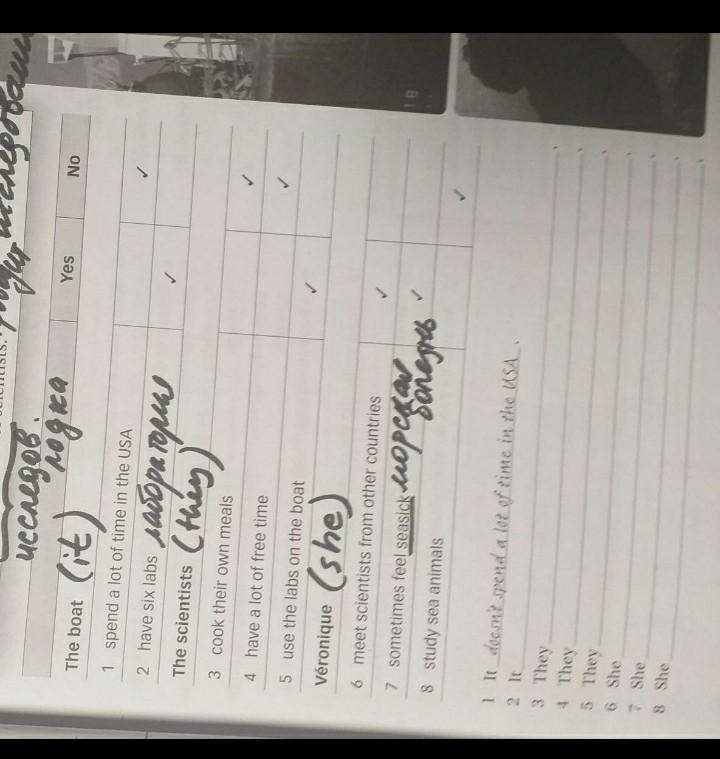 исследов.
лодка
The boat (it) Yes No
1 spend a lot of time in the USA ✓
2 have six labs лаборатории ✓
The scientists (they)
3 cook their own meals ✓
4 have a lot of free time ✓
5 use the labs on the boat ✓
Véronique (she)
6 meet scientists from other countries ✓
7 sometimes feel seasick морская болезнь ✓
8 study sea animals ✓
1 It doesn't spend a lot of time in the USA .
2 It .
3 They .
4 They .
5 They .
6 She .
7 She .
8 She .